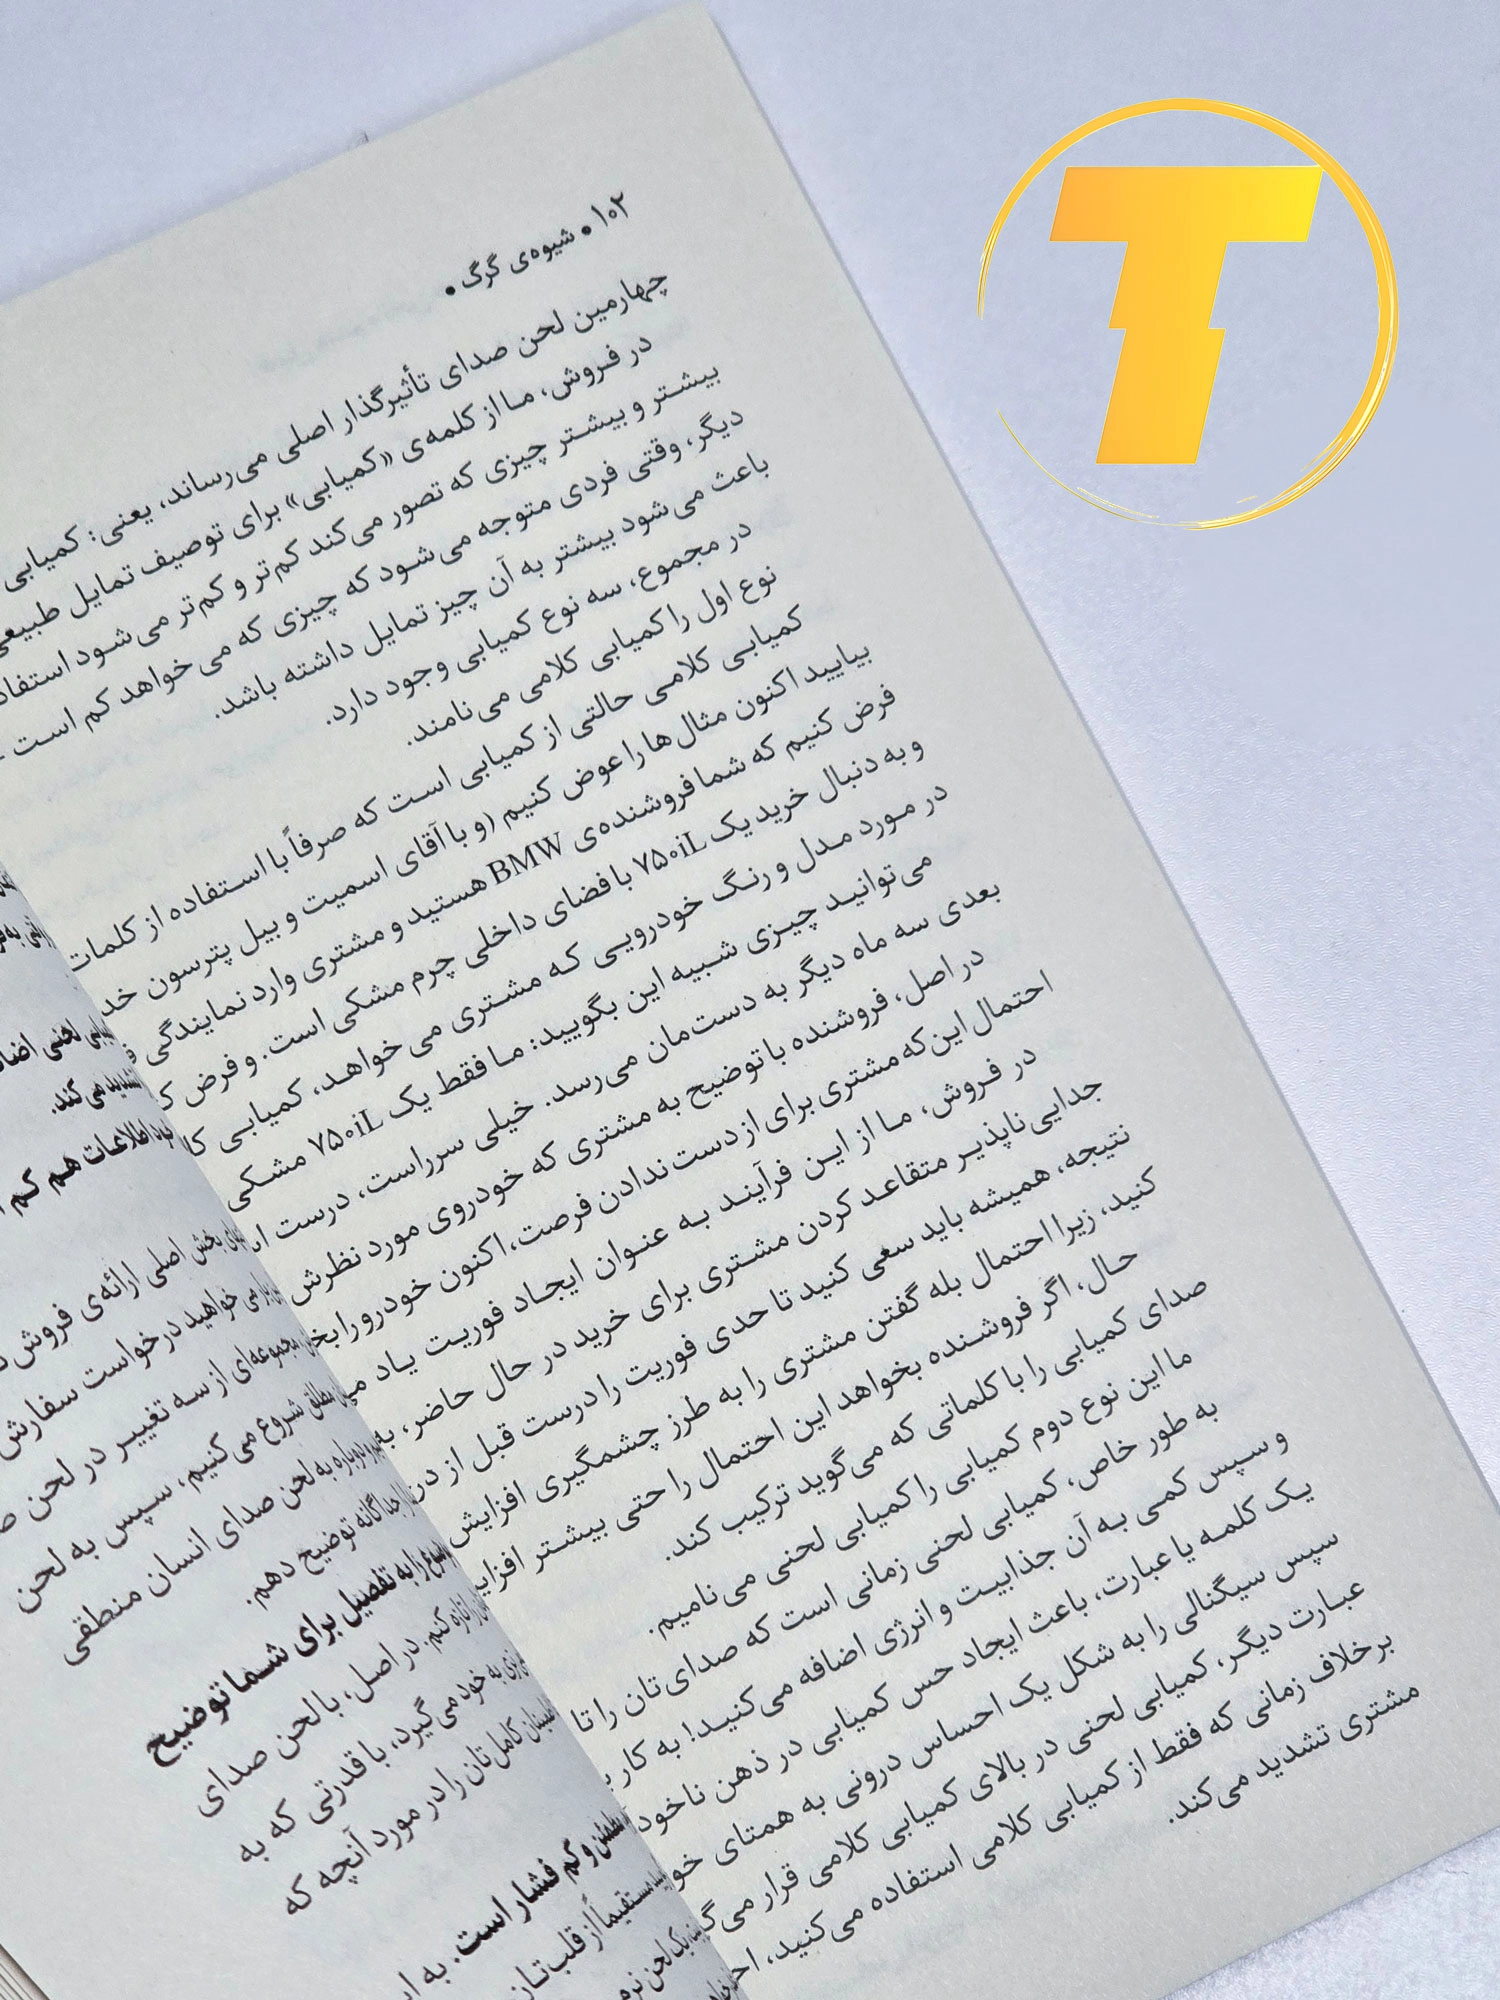 ۱۰۲ • شیوه‌ی گرگ •
چهارمین لحن صدای تأثیرگذار اصلی می‌رساند، یعنی: کمیابی
در فروش، ما از کلمه‌ی «کمیابی» برای توصیف تمایل طبیعی
بیشتر و بیشتر چیزی که تصور می‌کند کم‌تر و کم‌تر می‌شود
دیگر، وقتی فردی متوجه می‌شود که چیزی که می‌خواهد کم است
باعث می‌شود بیشتر به آن چیز تمایل داشته باشد.
در مجموع، سه نوع کمیابی وجود دارد.
نوع اول را کمیابی کلامی می‌نامند.
کمیابی کلامی حالتی از کمیابی است که صرفاً با استفاده از کلمات
بیایید اکنون مثال‌ها را عوض کنیم (و با آقای اسمیت و بیل پترسون
فرض کنیم که شما فروشنده‌ی BMW هستید و مشتری وارد نمایندگی
و به دنبال خرید یک ۷۵۰iL با فضای داخلی چرم مشکی است. و فرض
در مورد مدل و رنگ خودرویی که مشتری می‌خواهد، کمیابی
می‌توانید چیزی شبیه این بگویید: ما فقط یک ۷۵۰iL مشکی
بعدی سه ماه دیگر به دست‌مان می‌رسد. خیلی سرراست، درست
در اصل، فروشنده با توضیح به مشتری که خودروی مورد نظرش
احتمال این‌که مشتری برای از دست ندادن فرصت، اکنون خودرو را
در فروش، ما از این فرآیند به عنوان ایجاد فوریت یاد
جدایی‌ناپذیر متقاعد کردن مشتری برای خرید در حال حاضر،
نتیجه، همیشه باید سعی کنید تا حدی فوریت را درست قبل از
کنید، زیرا احتمال بله گفتن مشتری را به طرز چشمگیری افزایش
حال، اگر فروشنده بخواهد این احتمال را حتی بیشتر
صدای کمیابی را با کلماتی که می‌گوید ترکیب کند.
ما این نوع دوم کمیابی را کمیابی لحنی می‌نامیم.
به طور خاص، کمیابی لحنی زمانی است که صدای‌تان را تا
و سپس کمی به آن جذابیت و انرژی اضافه می‌کنید! به کار
یک کلمه یا عبارت، باعث ایجاد حس کمیابی در ذهن
سپس سیگنالی را به شکل یک احساس درونی به همتای
عبارت دیگر، کمیابی لحنی در بالای کمیابی کلامی قرار
برخلاف زمانی که فقط از کمیابی کلامی استفاده می‌کنید،
مشتری تشدید می‌کند.
لحنی
تشدید می‌کند.
اطلاعات هم کم
بخش اصلی ارائه‌ی فروش
خواهید درخواست سفارش
مجموعه‌ای از سه تغییر در لحن
مطلق شروع می‌کنیم، سپس به لحن
دوباره به لحن صدای انسان منطقی
جداگانه توضیح دهم.
را به تفصیل برای شما توضیح
در اصل، با لحن صدای
به خود می‌گیرد، با قدرتی که به
کامل‌تان را در مورد آنچه که
و کم فشار است. به
مستقیماً از قلب‌تان
یک لحن نرم
T